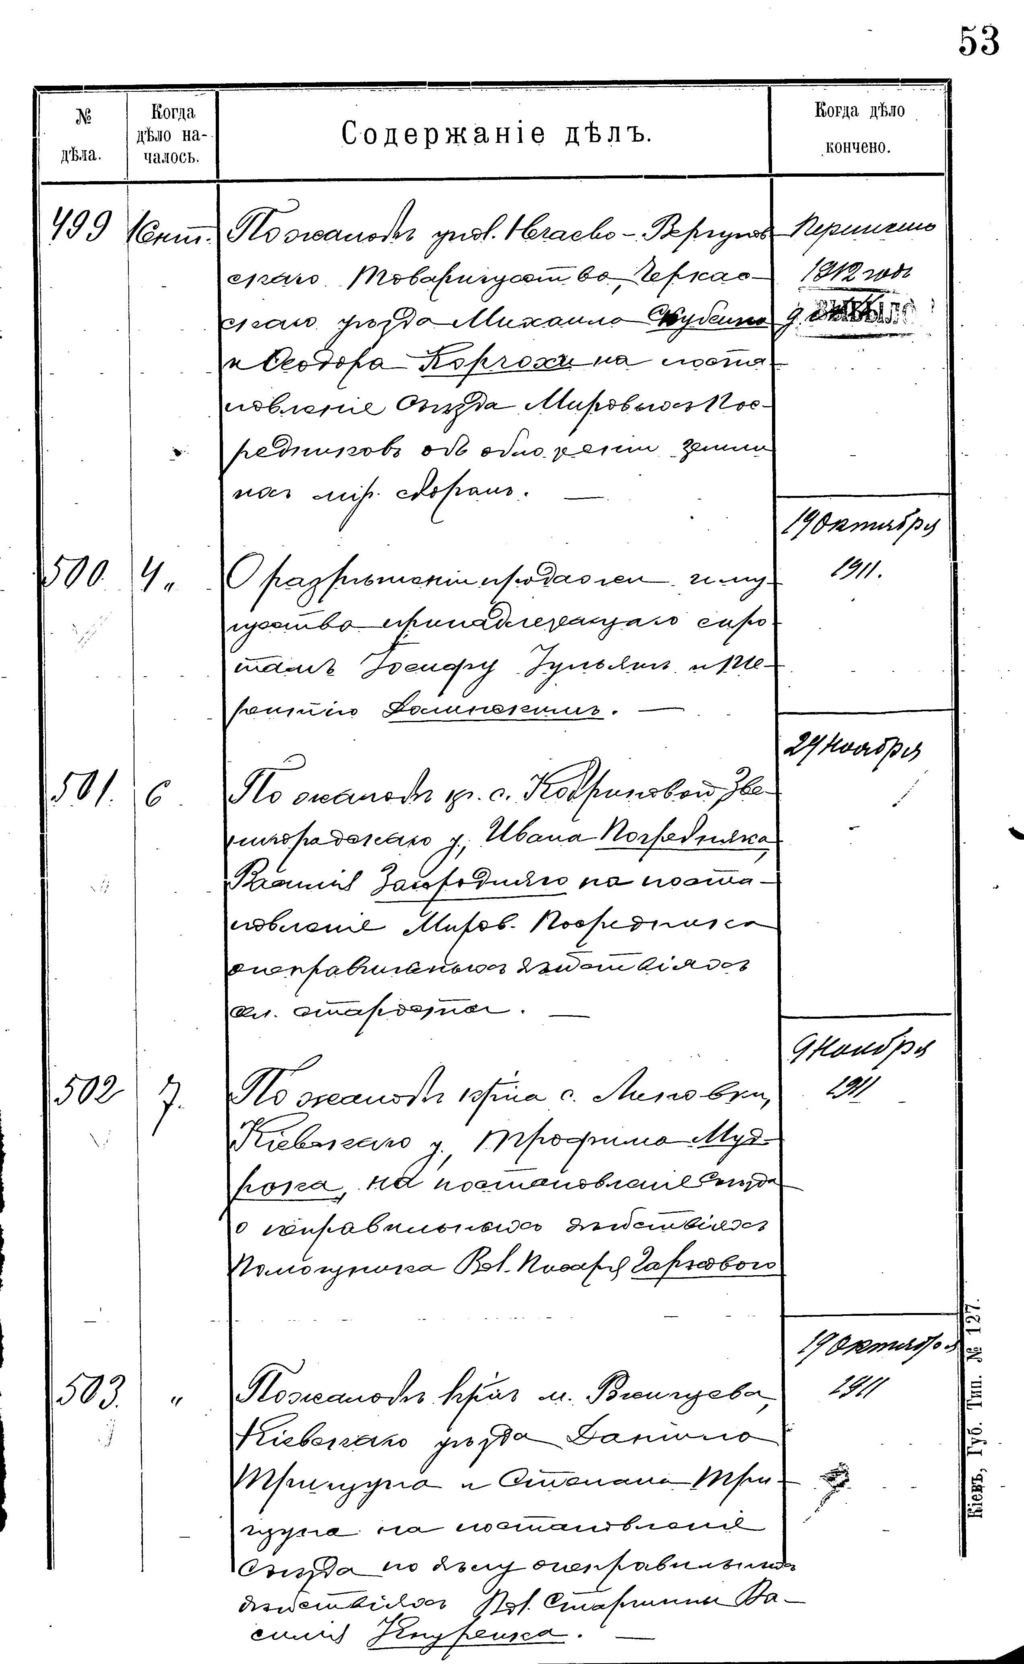 53
№ дѣла.
Когда дѣло началось.
Содержаніе дѣлъ.
Когда дѣло кончено.
499 1 Сент. По жалобѣ упол. Нечаево-Вергунов-
скаго Товарищества, Черкас-
скаго уѣзда Михаила
и Ѳеодора на поста-
новленіе Съѣзда Мировыхъ Пос-
редниковъ объ обложеніи земли
ихъ мір. сборами.
1912 года
ВЫБЫЛО
500 4 " О разрѣшеніи продажи иму-
щества принадлежащаго сиро-
тамъ Іосифу
Долинскимъ.
19 Октября
1911.
501. 6 По жалобѣ кр. с. Кобриновой, Зве-
нигородскаго у., Ивана Погребняка,
Василія Загородняго на поста-
новленіе Миров. Посредника
о неправильныхъ дѣйствіяхъ
сел. старосты.
29 Ноября
502 7. По жалобѣ кр-на с. Липовки,
Кіевскаго у. Трофима Муд-
рока, на постановленіе Съѣзда
о неправильныхъ дѣйствіяхъ
Помощника Вол. Писаря Гаркового
9 Ноября
1911
503. " По жалобѣ кр-нъ м.
Кіевскаго уѣзда Даніила
Трищуна и Степана Три-
щуна на постановленіе
Съѣзда по дѣлу о неправильныхъ
дѣйствіяхъ Вол. Старшины Ва-
силія Кнуренка.
19 Октября
1911
Кіевъ, Губ. Тип. № 127.